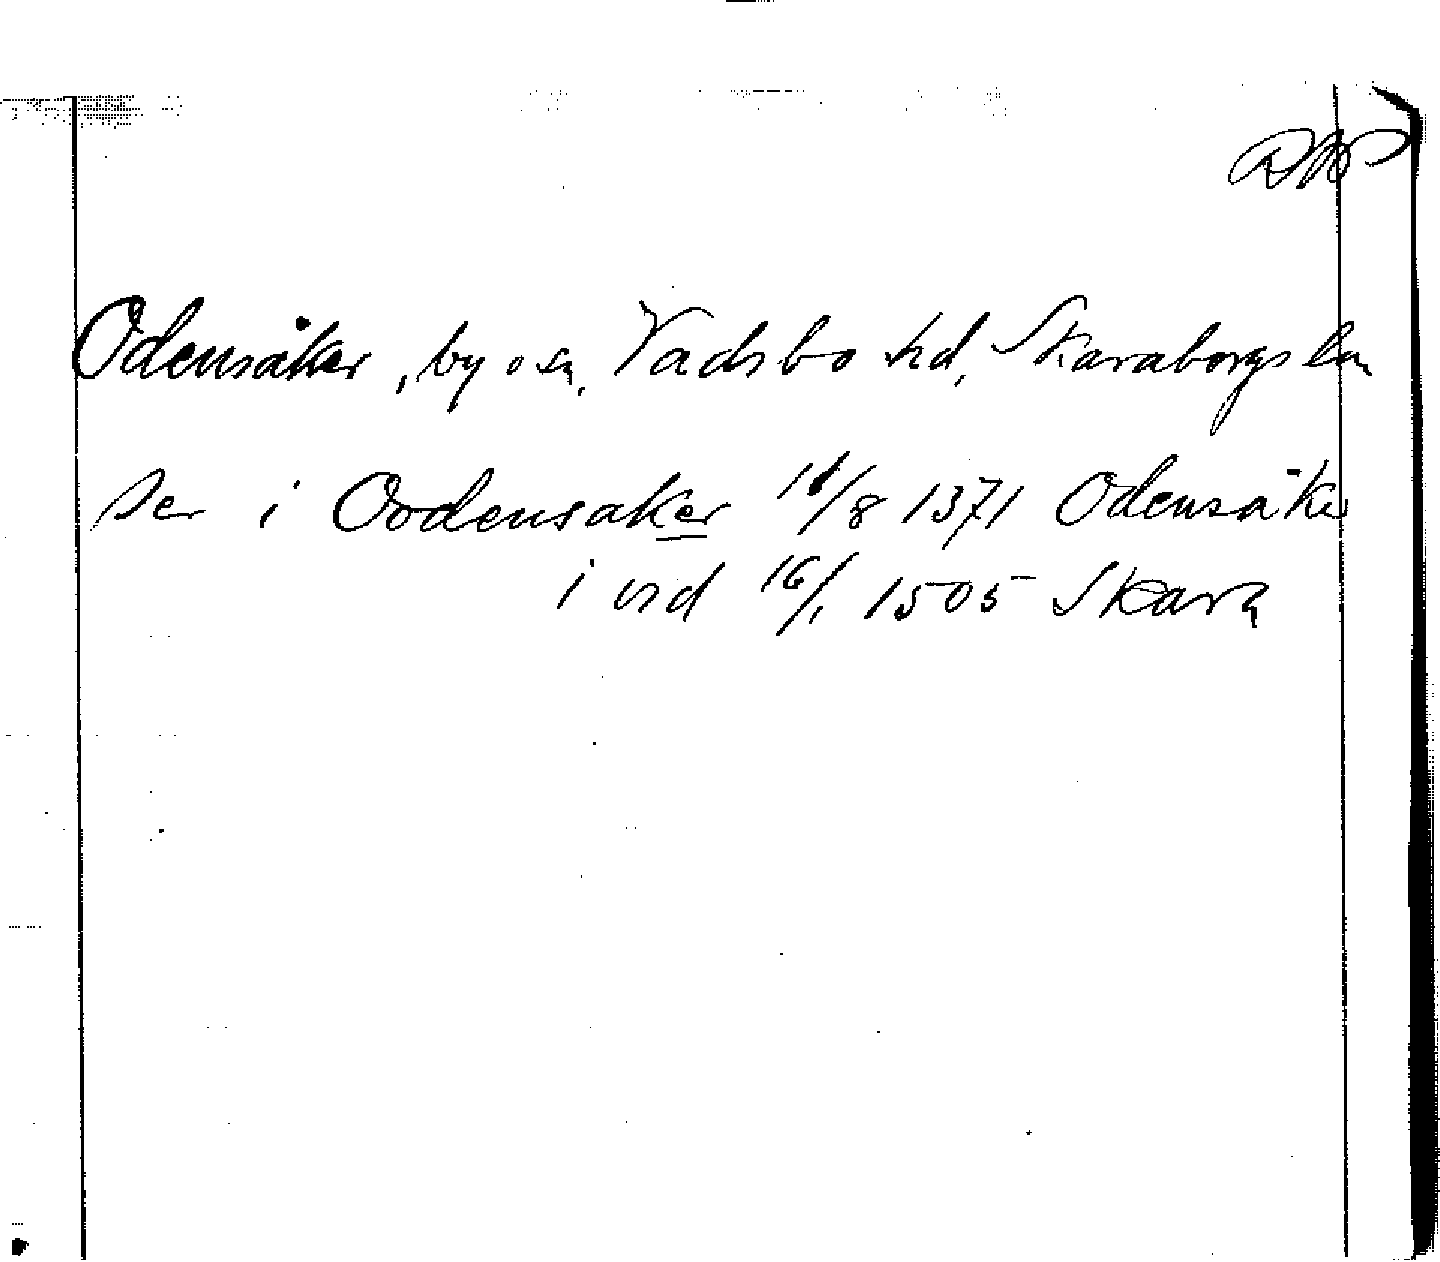 Odensåker, by o sn, Vadsbo hd, Skaraborgs län
ser i Oodensaker /8 1371 Odensåker
i vid 16/1 1505 Skara